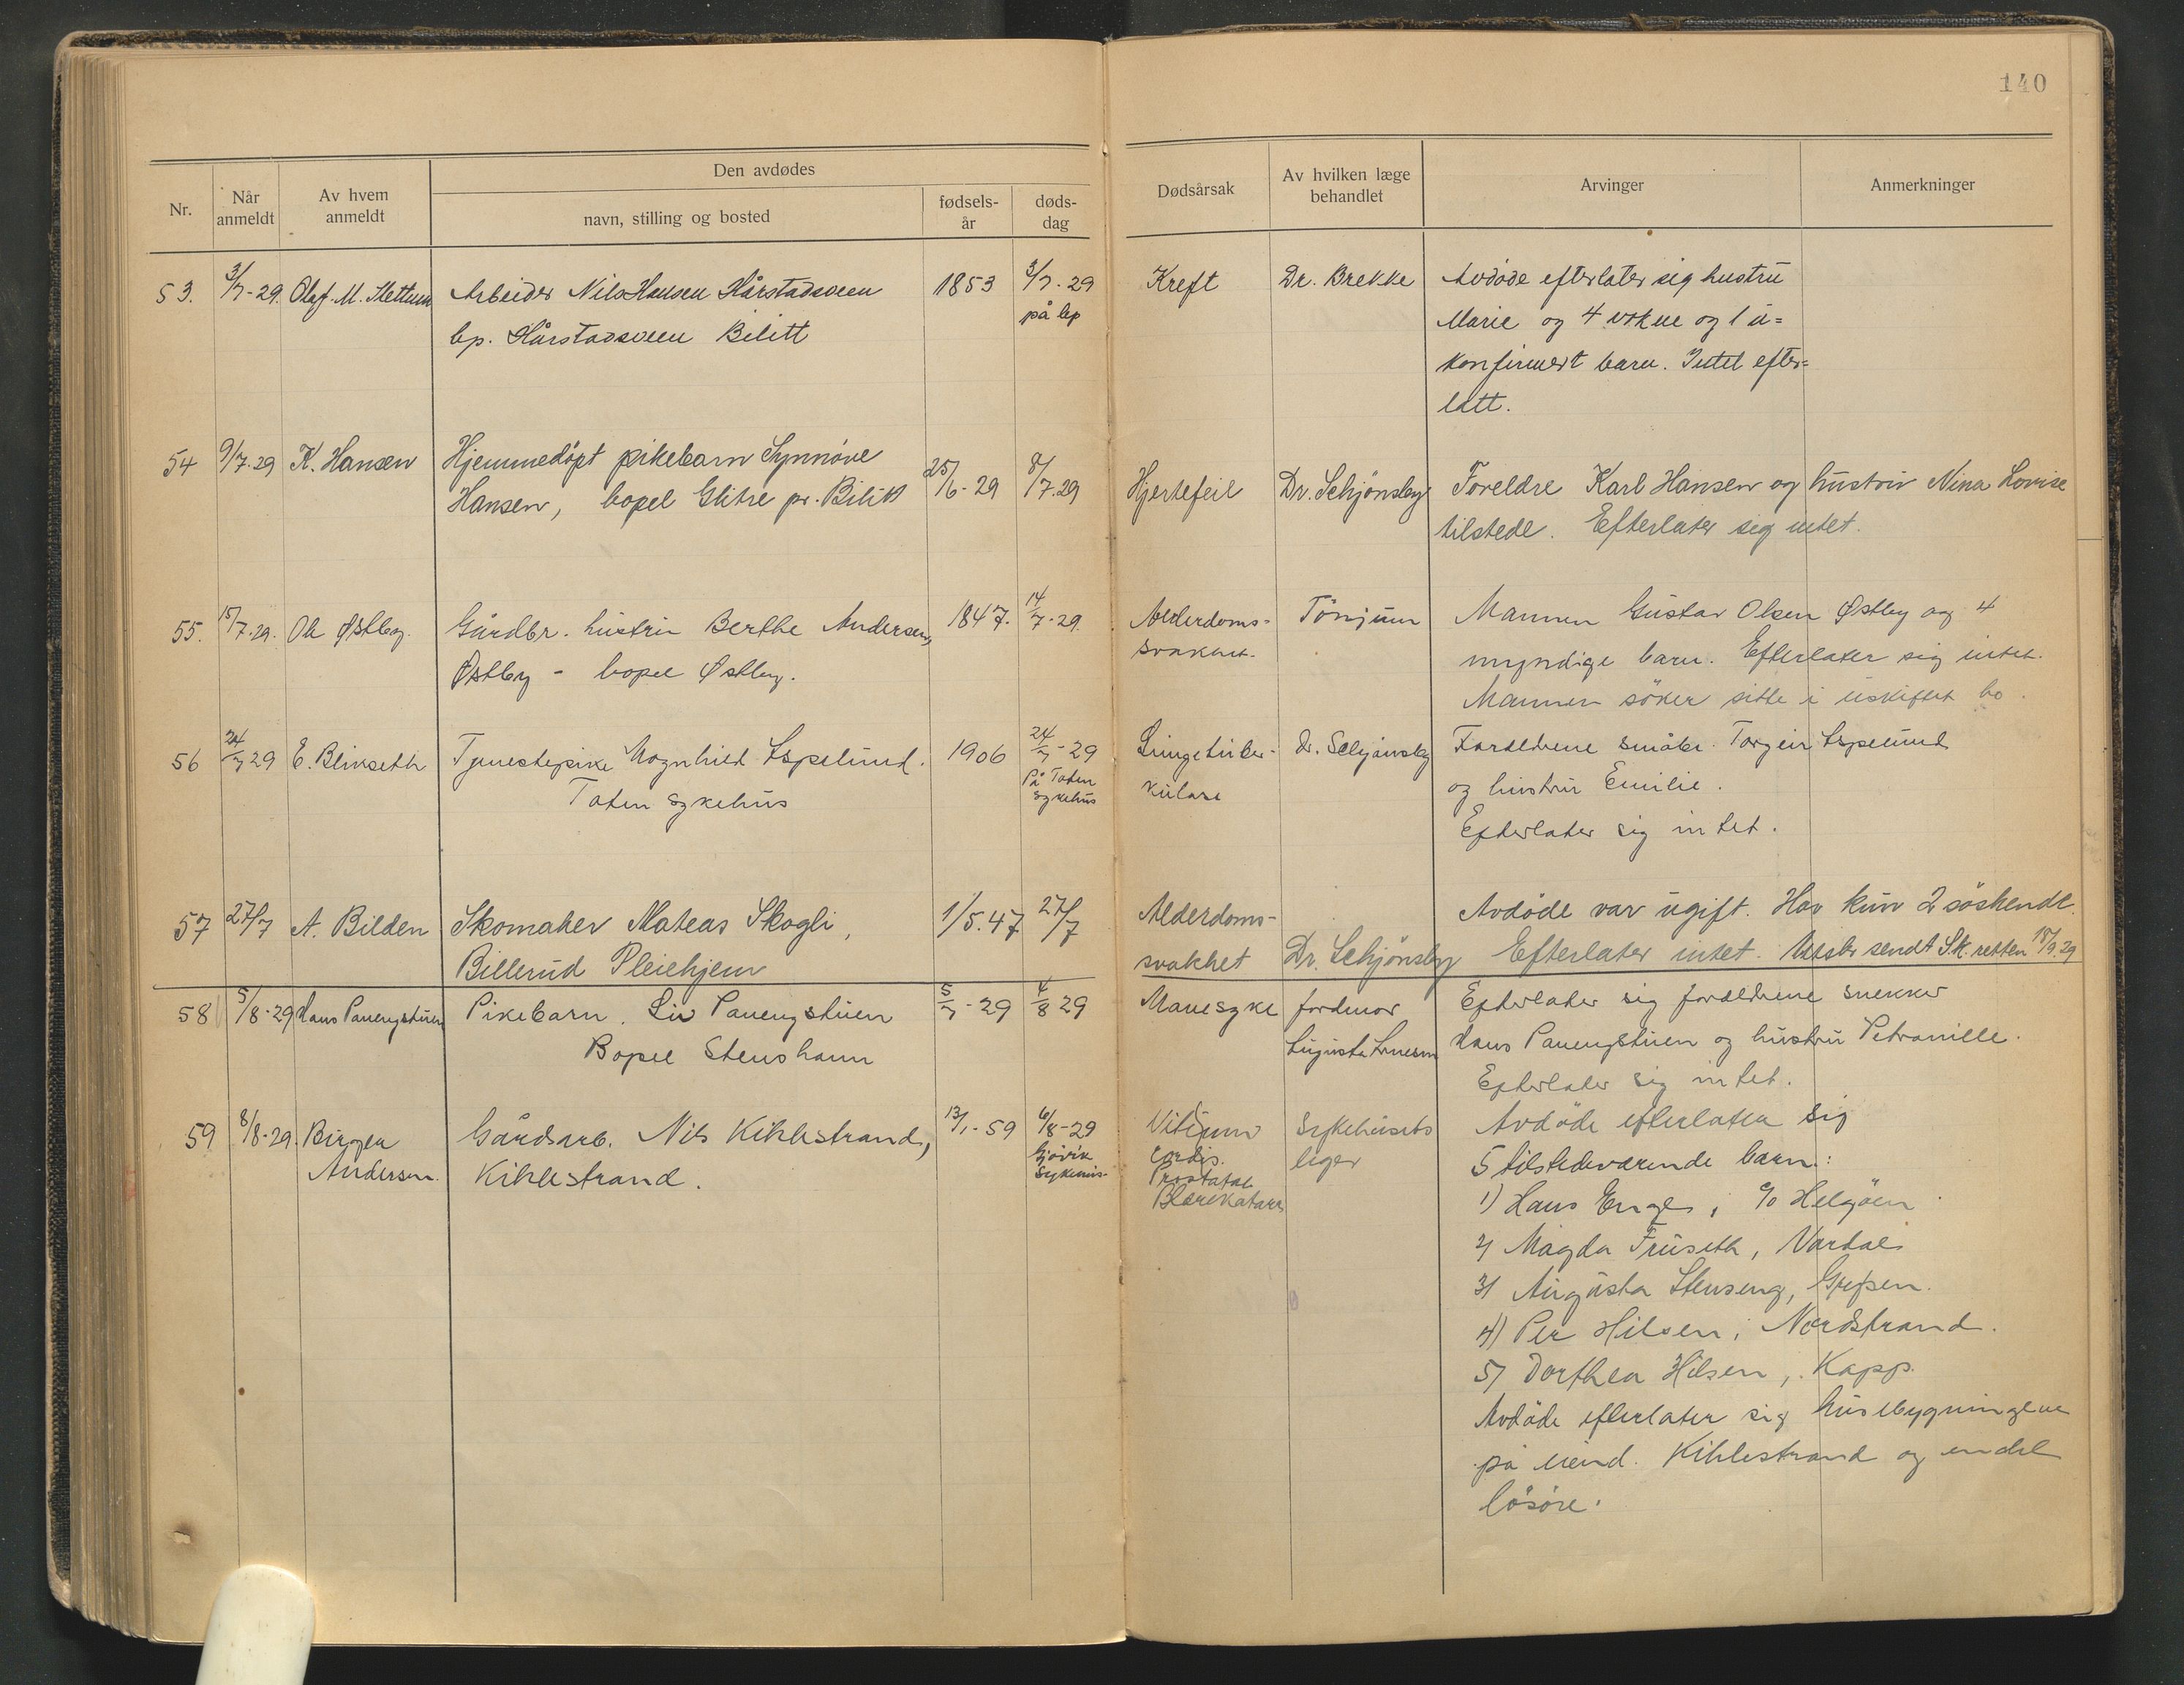 140
Den avdødes
Nr.
Når anmeldt
Av hvem anmeldt
navn, stilling og bosted
fødsels-år
døds-dag
Dødsårsak
Av hvilken læge behandlet
Arvinger
Anmerkninger
53. 3/7-29. Olaf. M. Slettum Arbeider Nils Hansen Hårstadsveen 1853 3/7-29 Kreft Dr. Brekke Avdøde efterlater sig hustru
bp. Hårstadsveen Bilitt på bp Marie og 4 vokne og 1 u=
konfirmert barn. Intet efter=
latt.
54 9/7-29 K. Hansen Hjemmedöpt pikebarn Synnöve 25/6-29 8/7.29 Hjertefeil Dr. Schjönsby Foreldre Karl Hansen og hustru Nina Lovise
Hansen, bopel Glitre pr. Bilitt tilstede. Efterlater sig intet.
55. 15/7.29. Ole Østby. Gårdbr. hustru Berthe Andersen, 1847. 14/7-29. Alderdoms- Tönjum Mannen Gustav Olsen Østby og 4
Østby - bopel Østby. svakhet. myndige barn. Efterlater sig intet.
Mannen söker sitte i uskiftet bo.
56 24/7 29 E. Blikseth Tjenestepike Magnhild Espelund. 1906 24/7-29 Lungetuber- Dr. Schjönsby Foreldrene småbr. Torgeir Espelund
Toten sykehus På Toten sykehus kulose og hustru Emilie.
Efterlater sig intet.
57 27/7 A. Bilden Skomaker Mateas Skogli, 1/5.47 27/7 Alderdoms- Avdöde var ugift. Har kun 2 söskende.
Billerud Pleiehjem svakhet Dr. Schjönsby Efterlater intet. Attestr sendt Sk. retten 18/9.29
58 5/8-29 Hans Pauengstuen Pikebarn. Liv Pauengstuen 5/7-29 4/8 29 Mavesyke jordmor Efterlater sig foreldrene snekker
Bopel Stenshaun Hans Pauengstuen og hustru Petronille.
Efterlater sig intet.
59 8/8-29. Birger Gårdarb. Nils Kihlestrand, 13/1-59 6/8-29 Vitium Sykehusets Avdöde efterlater sig
Andersen. Kihlestrand. Gjövik sykehus. cordis. leger 5 tilstedeværende barn:
Prostatae
Blærekatarr 1) Hans Enger, % Helgöen
2) Magda Fruseth, Vardal
3) Augusta Stenseng, Grefsen.
4) Per Hilsen, Nordstrand.
5) Dorthea Hilsen, Kapp.
Avdöde efterlater sig husebygningene
på eiend. Kihlestrand og endel
lösöre.